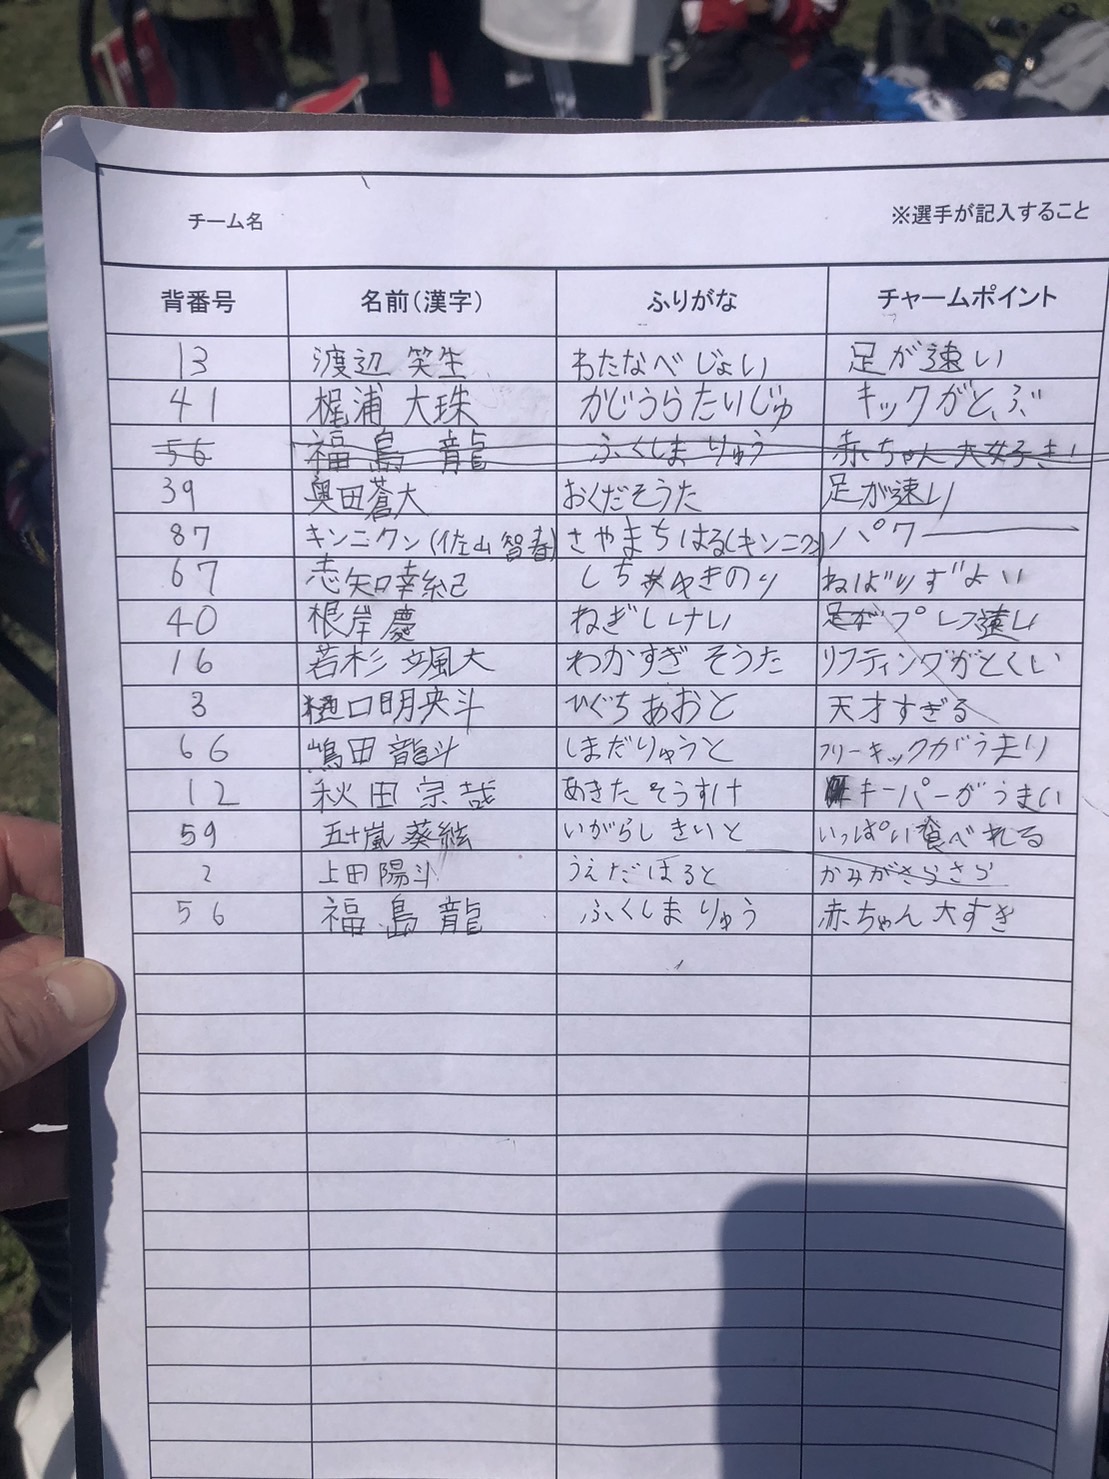 チーム名 ※選手が記入すること
背番号 名前(漢字) ふりがな チャームポイント
13 渡辺 笑生 わたなべ じょい 足が速い
41 梶浦 大珠 かじうらたいじゅ キックがとぶ
56 福島 龍 ふくしま りゅう 赤ちゃん 大好き
39 奥田蒼大 おくだそうた 足が速い
87 キンニクン(佐山 智春) さやまちはる(キンニクン) パワー
67 志知幸紀 しち ゆきのり ねばりずよい
40 根岸 慶 ねぎしけい プレス速い
16 若杉 颯大 わかすぎ そうた リフティングがとくい
3 樋口明央斗 ひぐちあおと 天才すぎる
66 嶋田 龍斗 しまだりゅうと フリーキックがう走り
12 秋田 宗哉 あきた そうすけ キーパーがうまい
59 五十嵐 葵絃 いがらし きいと いっぱい食べれる
2 上田 陽斗 うえだ はると かみがさらさら
56 福島 龍 ふくしま りゅう 赤ちゃん 大すき